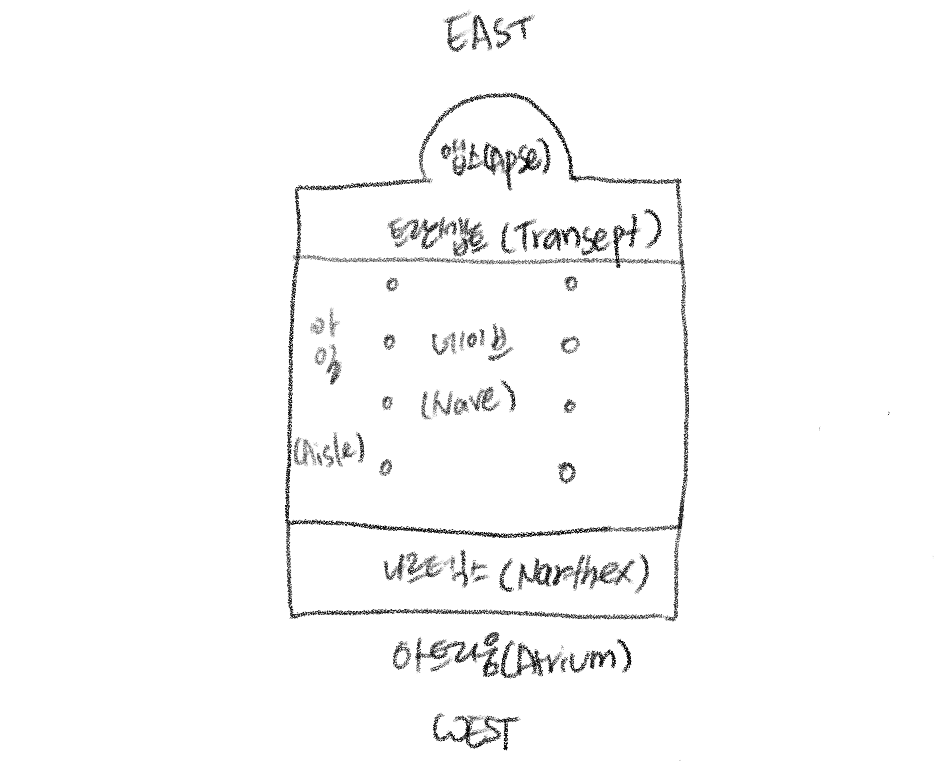 EAST
앱스(Apse)
트란셉트 (Transept)
아
일
(Aisle)
네이브
(Nave)
나르텍스 (Narthex)
아트리움(Atrium)
WEST